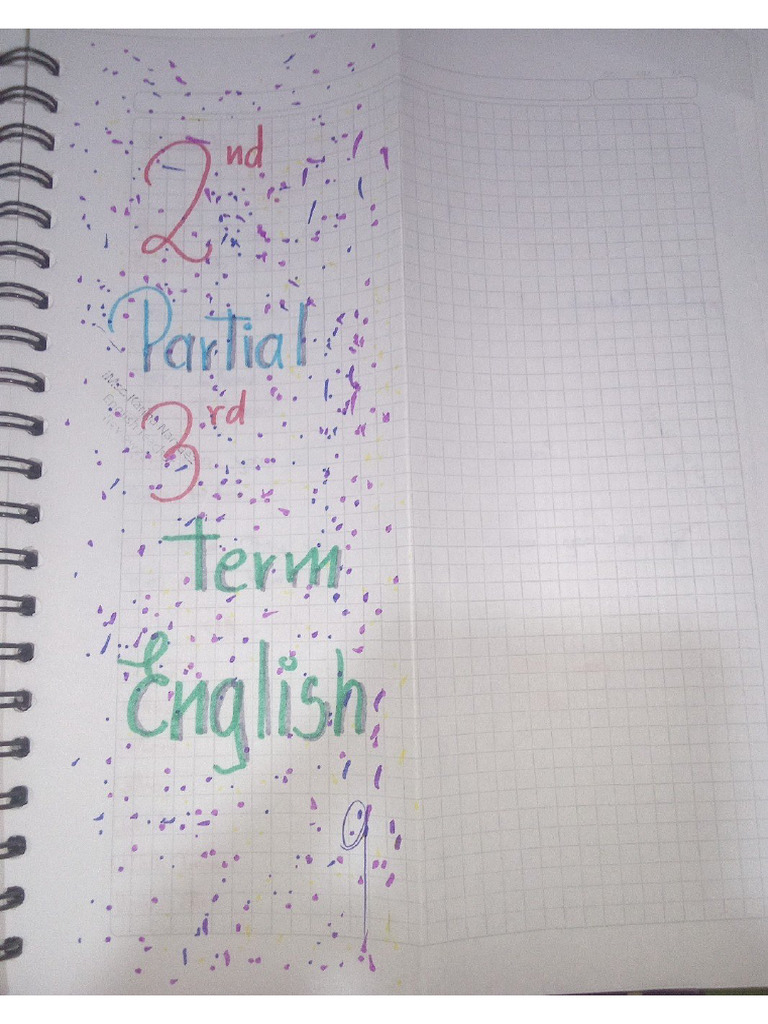 2nd
Partial
3rd
term
English
9